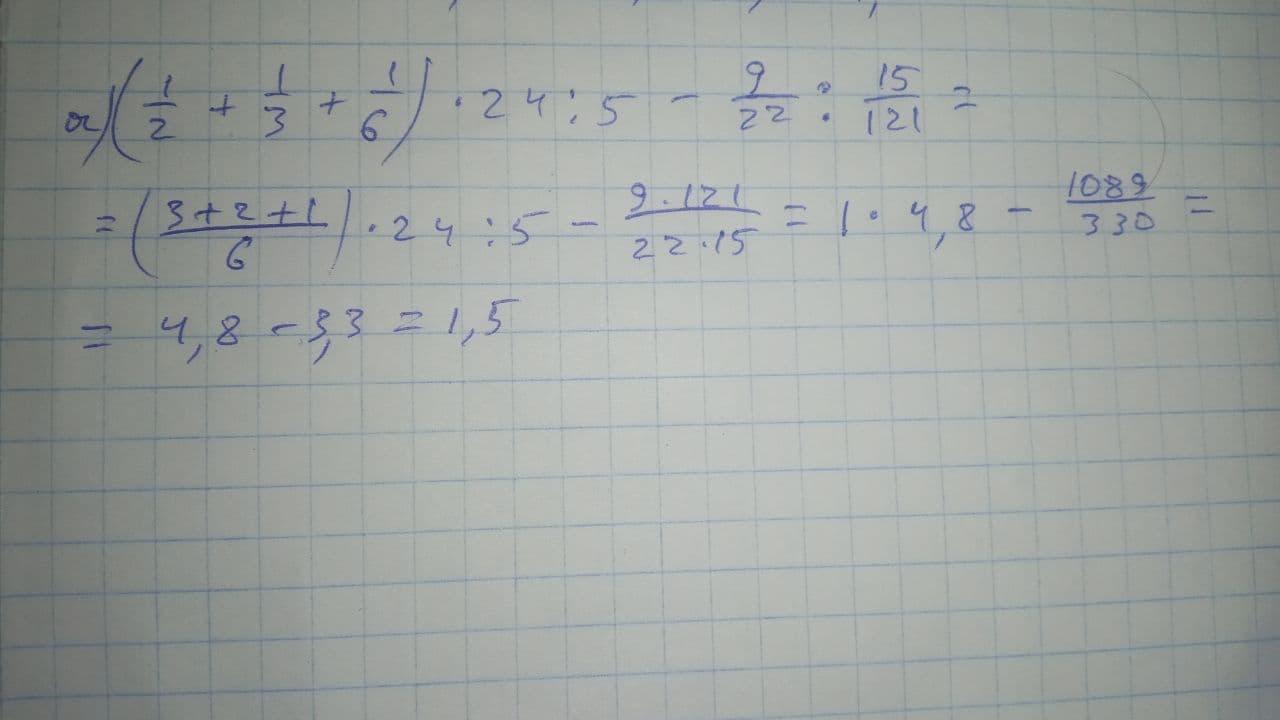 а) (1/2 + 1/3 + 1/6) · 24 : 5 - 9/22 : 15/121 =
= ((3+2+1)/6) · 24 : 5 - (9·121)/(22·15) = 1 · 4,8 - 1089/330 =
= 4,8 - 3,3 = 1,5